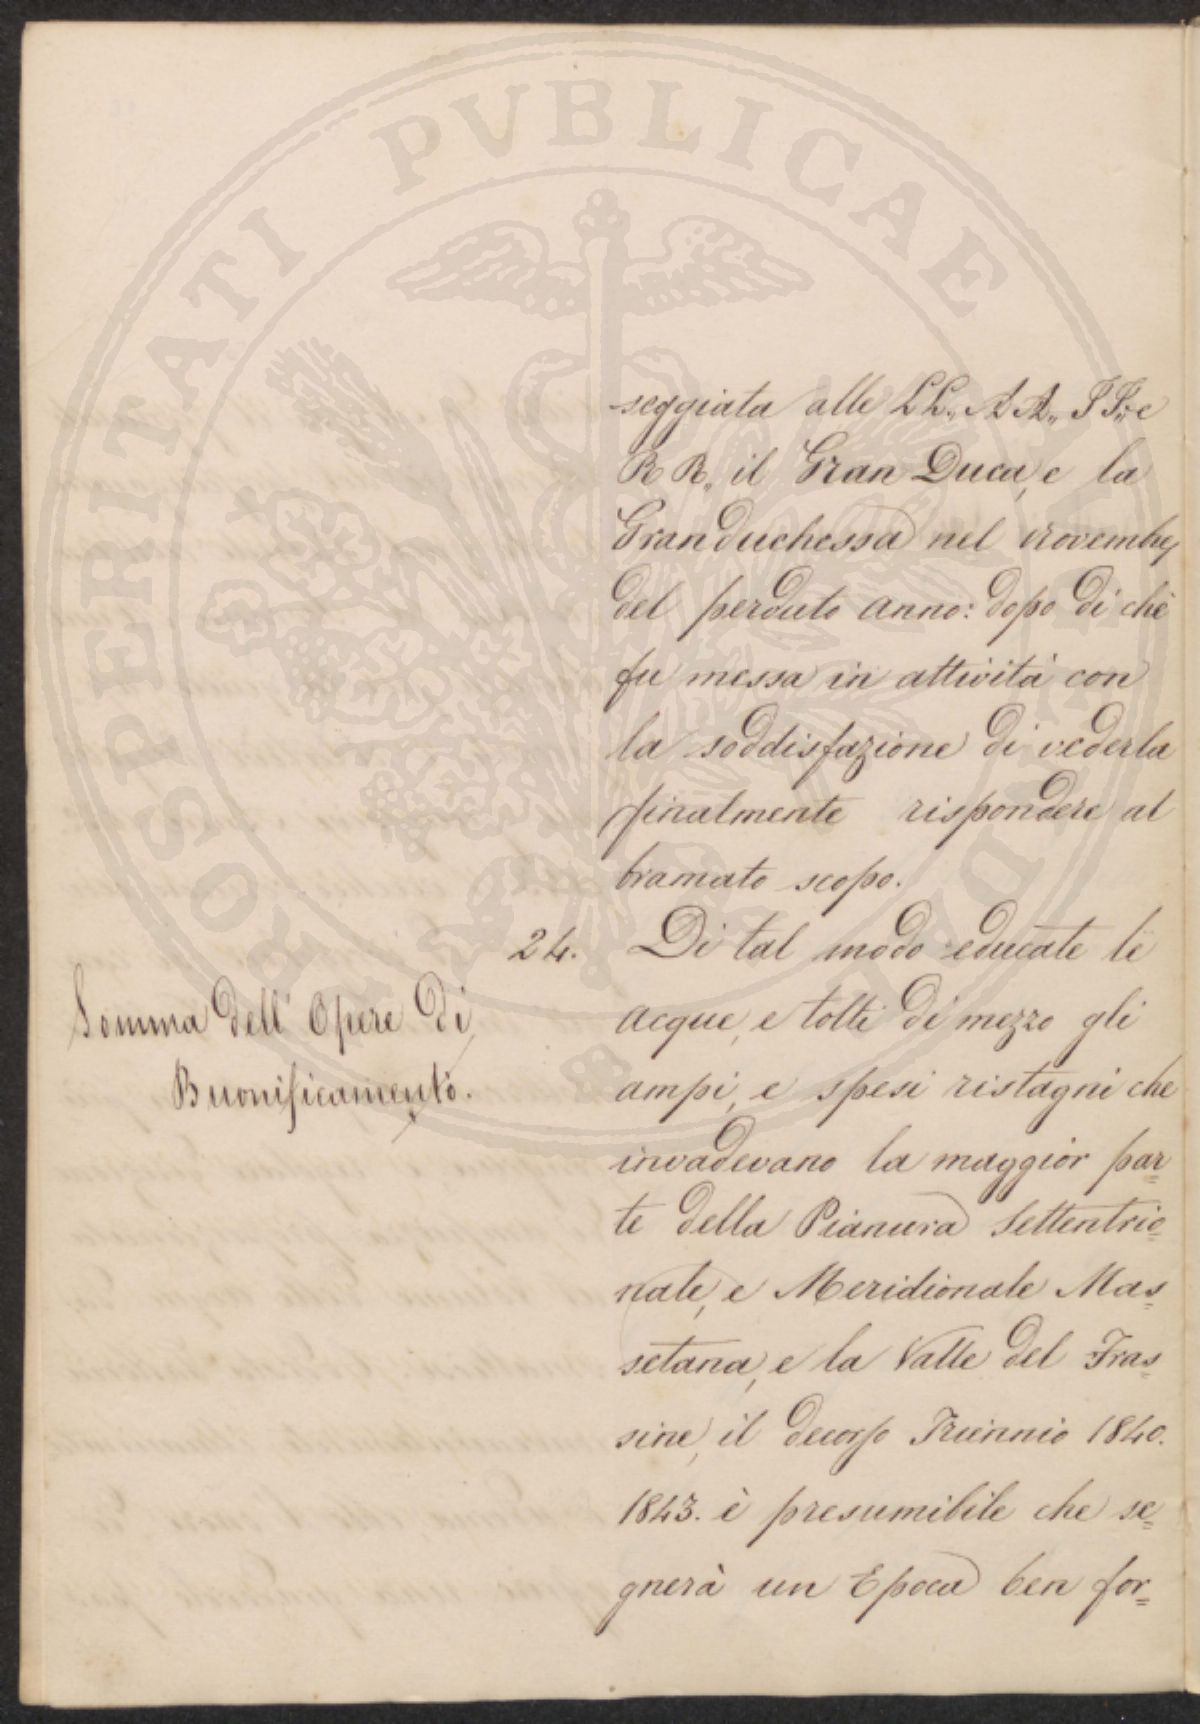 PROSPERITATI PVBLICAE
seggiata alle LL,, AA,, II,, e
RR,, il Gran Duca, e la
Granduchessa nel novembre
del perduto anno: dopo di che
fu messa in attività con
la soddisfazione di vederla
finalmente rispondere al
bramato scopo.
24. Di tal modo educate le
Somma dell'Opere di
Buonificamento.
acque, e tolti di mezzo gli
ampi, e spesi ristagni che
invadevano la maggior par=
te della Pianura Settentrio=
nale, e Meridionale Mas=
setana, e la Valle del Fras=
sine, il decorso Triennio 1840.
1843. è presumibile che se=
gnerà un Epoca ben for=